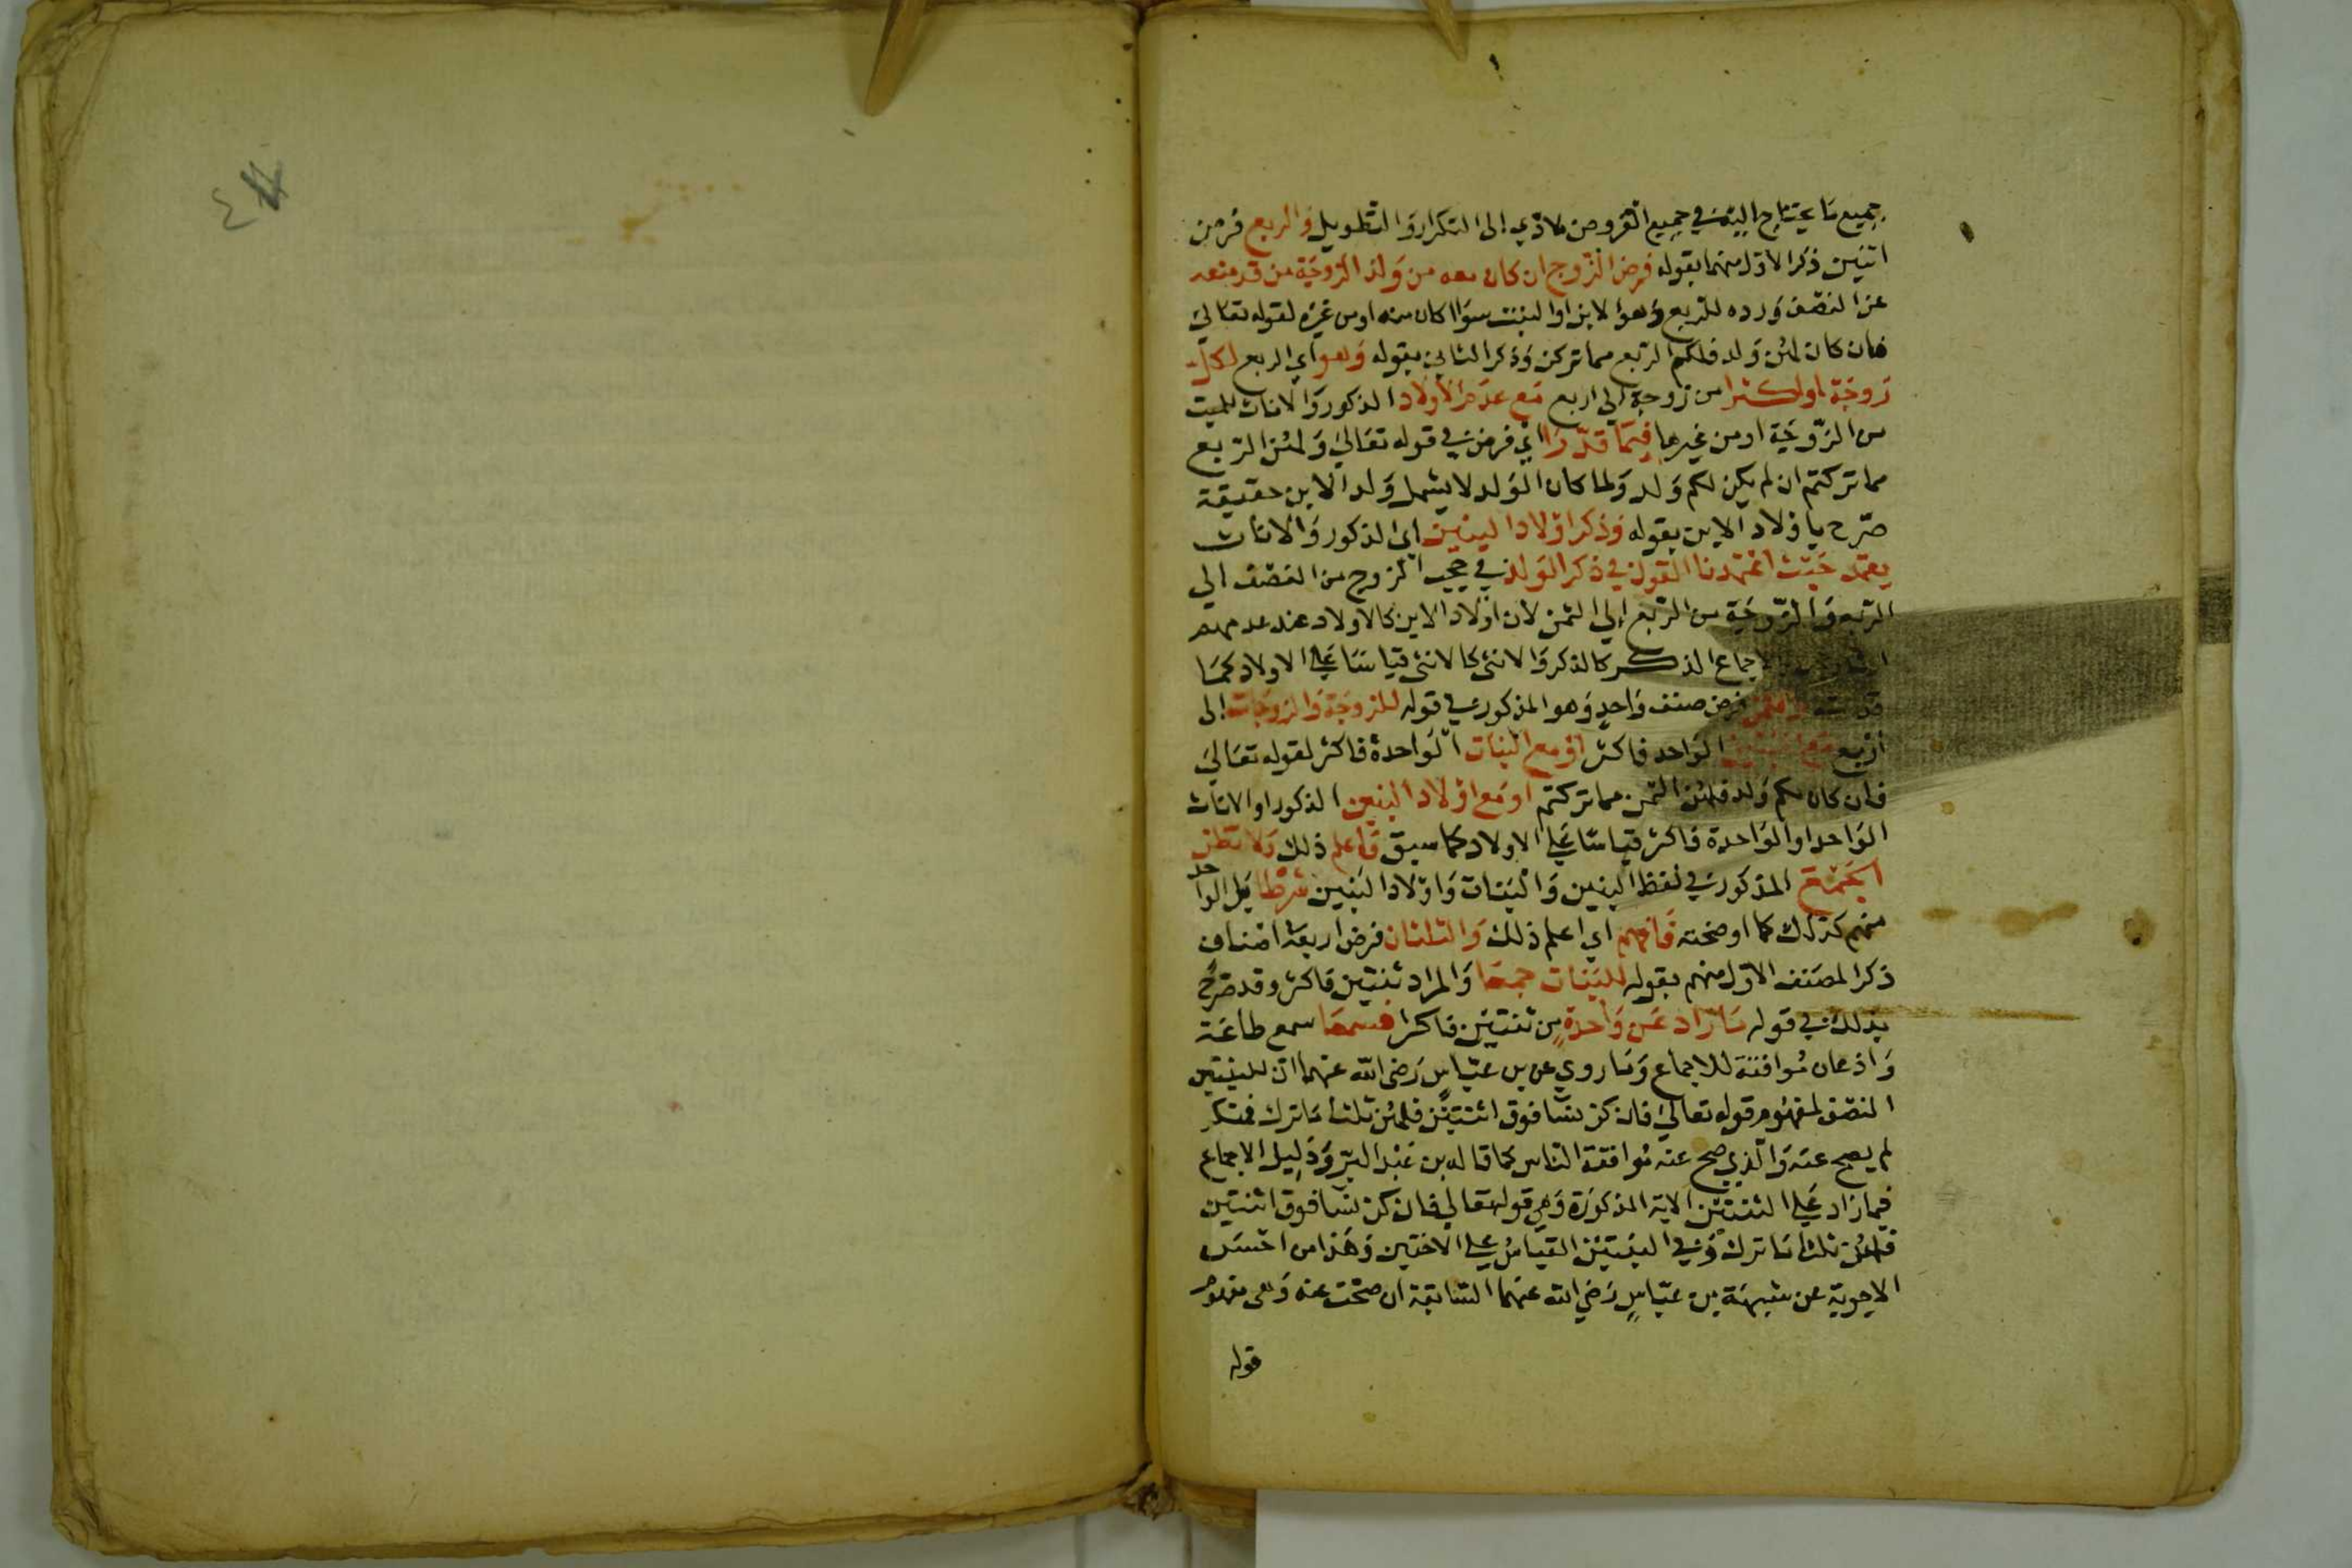 جميع ما يحتاج اليه في جميع الفروض لادي الى التكرار والتطويل والربع فرض
اثنين ذكر الاول منهما بقوله فرض الزوج ان كان معه من ولد الزوجة من قد منعه
عن النصف ورده للربع وهو الابن او البنت سوا كان منه او من غيره لقوله تعالى
فان كان لهن ولد فلكم الربع مما تركن وذكر الثاني بقوله وهو اي الربع لكل
زوجة او اكثرا من زوجة الى اربع مع عدم الاولاد الذكور والاناث للميت
من الزوجة او من غيرها فيما قدرا اي فرض في قوله تعالى ولهن الربع
مما تركتم ان لم يكن لكم ولد ولما كان الولد لا يشمل ولد الابن حقيقة
صرح باولاد الابن بقوله وذكر اولاد البنين اي الذكور والاناث
يعتمد حيث اعتمدنا القول في ذكر الولد في حجب الزوج من النصف الى
الربع والزوجة من الربع الى الثمن لان اولاد الابن كالاولاد عند عدمهم
الاجماع الذكر كالذكر والانثى كالانثى قياسا على الاولاد كما
والثمن فرض صنف واحد وهو المذكور في قوله للزوجة والزوجات الى
اربع مع البنين الواحد فاكثر او مع البنات الواحدة فاكثر لقوله تعالى
فان كان لكم ولد فلهن الثمن مما تركتم او مع اولاد البنين الذكور او الاناث
الواحد او الواحدة فاكثر قياسا على الاولاد كما سبق فاعلم ذلك ولا تظن
الجمع المذكور في لفظ البنين والبنات واولاد البنين شرطا بل الواحد
منهم كذلك كما اوضحته فافهم اي اعلم ذلك والثلثان فرض اربعة اصناف
ذكر المصنف الاول منهم بقوله للبنات جمعا والمراد ثنتين فاكثر وقد صرح
بذلك في قوله ما زاد عن واحدة من ثنتين فاكثر فسمعا سمع طاعة
واذعان موافقة للاجماع وما روي عن بن عباس رضي الله عنهما ان للبنتين
النصف لمفهوم قوله تعالى فان كن نسا فوق اثنتين فلهن ثلثا ما ترك فمنكر
لم يصح عنه والذي صح عنه موافقة الناس كما قاله بن عبد البر ودليل الاجماع
فيما زاد على الثنتين الاية المذكورة وهي قوله تعالى فان كن نسا فوق اثنتين
فلهن ثلثا ما ترك وفي البنتين القياس على الاختين وهذا من احسن
الاجوبة عن شبهة بن عباس رضي الله عنهما السابقة ان صحت عنه وهي مفهوم
قوله
٤